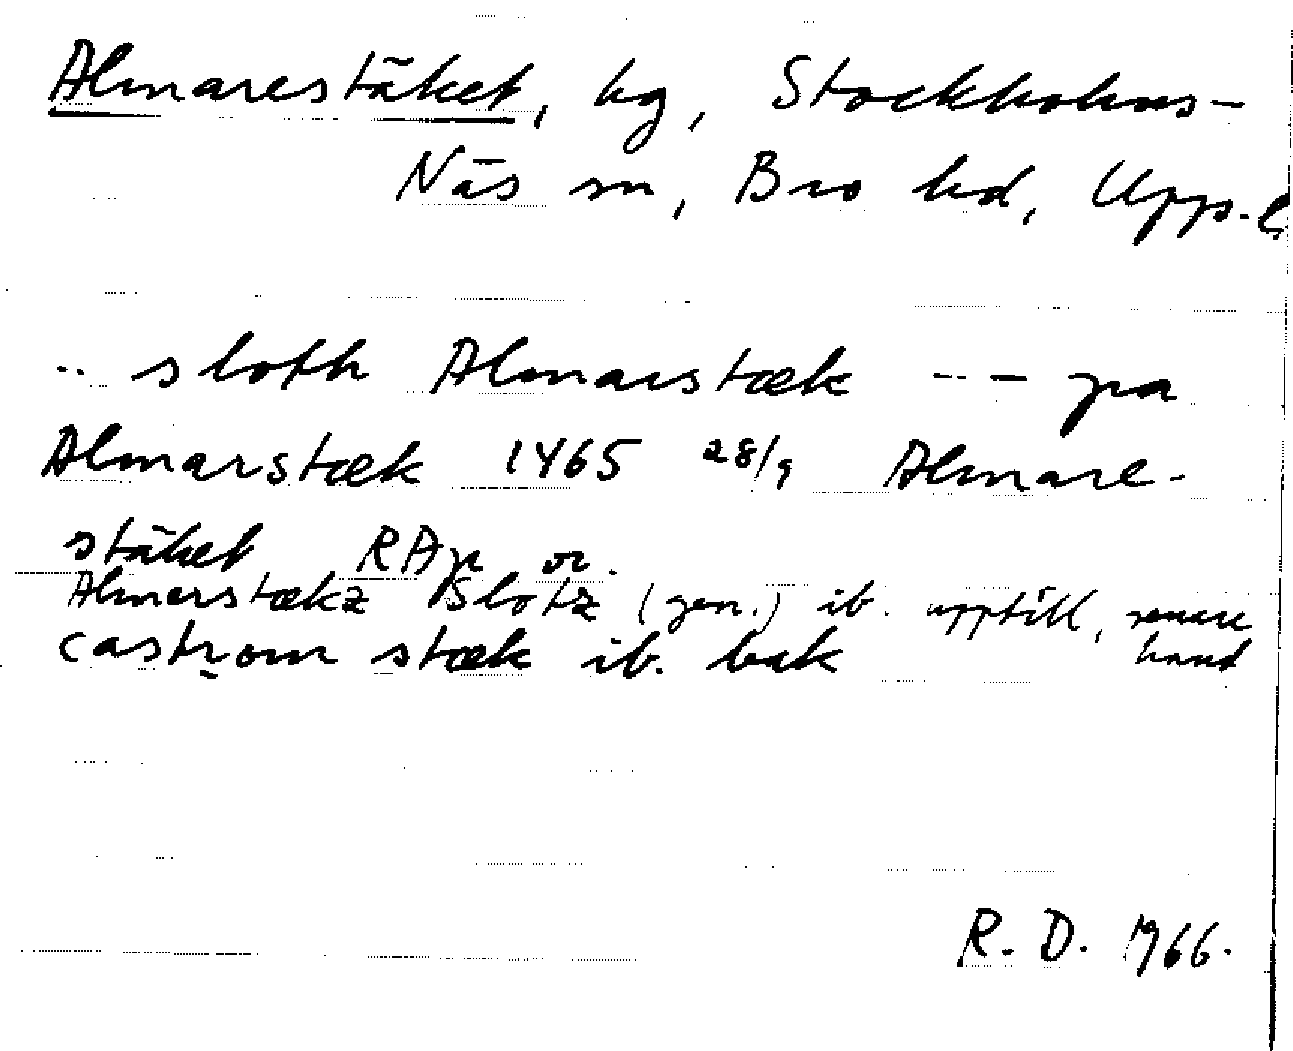 Almarestäket, hg, Stockholms-
Näs sn, Bro hd, Upps. l.
.. sloth Almarstæk - - pa
Almarstæk 1465 28/9 Almare-
stäket RAp or.
Almerstækz Slotz (gen.) ib. upptill, senare
hand
castrom stæk ib. bak
R. D. 1966.